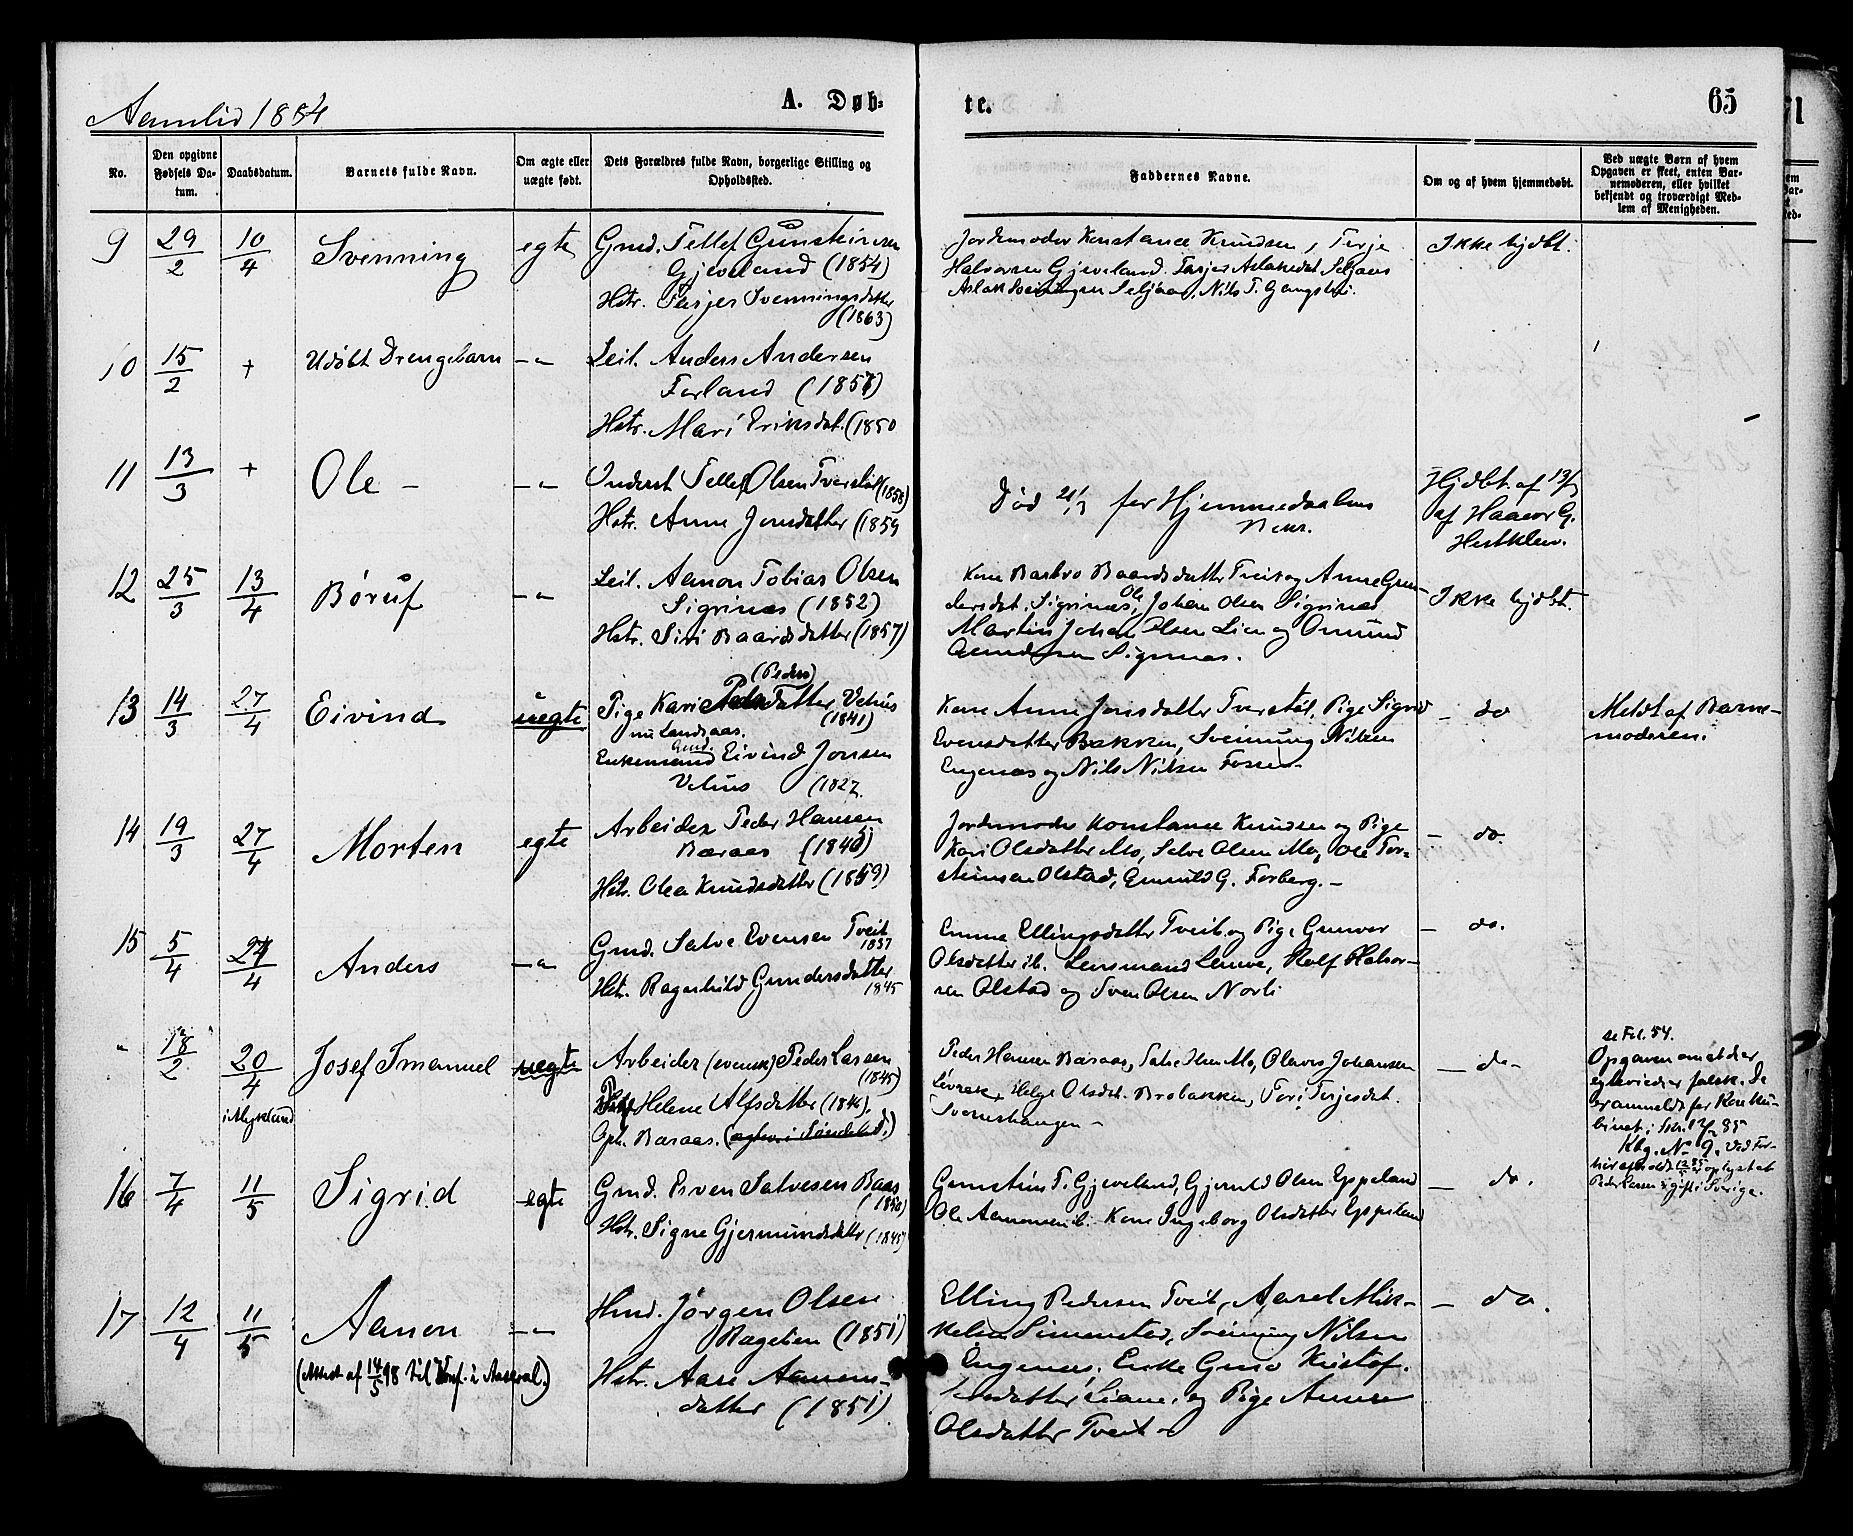 Aamlid 1884
A. Døb-
te.
65
No.
Den opgivne Fødsels Da-tum.
Daabsdatum.
Barnets fulde Navn.
Om ægte eller uægte født.
Dets Forældres fulde Navn, borgerlige Stilling og Opholdssted.
Faddernes Navne.
Om og af hvem hjemmedøbt.
Ved uægte Børn af hvem Opgaven er skeet, enten Bar-nemoderen, eller hvilket bekjendt og troværdigt Med-lem af Menigheden.
9 29/2 10/4 Svenning egte
Gmd. Tellef Gunsteinsen
Gjeveland (1854)
Hstr. Tasjer Svenningsdatter
(1863)
Jordemoder Konstance Knudsen, Terje
Halvorsen Gjeveland. Tasjer Aslaksdat Seljaas
Aslak Svenningsen Seljaas, Nils T. Gangsei.
Ikke hjdbt.
10 15/2 + Udøbt Drengebarn -"-
Leil. Anders Andersen
Forland (1857)
Hstr. Mari Eriksdat. (1850
11 13/3 + Ole - -"-
Inderst Tellef Olsen Tverstøl (1858)
Hstr. Anne Jonsdatter (1859
Død 21/3 før Hjemmedaabens
Bekr.
Hjdbt. af 13/3
af Haavor G.
Hestkleiv.
12 25/3 13/4 Børuf -"-
Leil. Aanon Tobias Olsen
Sigrinæs (1852)
Hstr. Siri Baardsdatter (1857)
Kone Barbro Baardsdatter Tveit og Anne Gun-
dersdat. Sigrinæs, Ole Johan Olsen Sigrinæs
Martin Johan Olsen Lien og Omund
Gundersen Sigrinæs.
Ikke hjdbt.
13 14/3 27/4 Eivind uegte
(Peders)
Pige Kari Pedersdatter Vehus
(1841)
nu Landsaas.
Enkemand Gmd. Eivind Jonsen
Vehus (1827.
Kone Anne Jonsdatter Tverstøl, Pige Sigrid
Evensdatter Bakken, Svenning Nilsen
Engenæs og Nils Nilsen Fosse
- do
Meldt af Barne-
moderen.
14 19/3 27/4 Morten egte
Arbeider Peder Hansen
Baraas (1845)
Hstr. Olea Knudsdatter (1859)
Jordemoder Konstance Knudsen og Pige
Kari Olsdatter Mo, Salve Olsen Mo, Ole Tor-
steinsen Olstad, Gunuld G. Forberg. -
- do.
15 5/4 27/4 Anders -"-
Gmd. Salve Evensen Tveit
1837
Hstr. Ragnhild Gundersdatter
1845
Emme Ellingsdatter Tveit og Pige Gunvor
Olsdatter ib. Lensmand Leuve, Rolf Halvor-
sen Olstad og Sven Olsen Norli
- do.
" 18/2 20/4 Josef Imanuel uegte
i Mykland
Arbeider (svensk) Peder Larsen
(1845)
Helene Alfsdatter (1846)
Oph. Baraas.
Peder Hansen Baraas, Salve Olsen Mo, Olaves Johansen
Løvrak, Helge Olsdat. Brobakken, Tori Terjesdat.
Svenshaugen -
- do -
se Fol. 54.
Opgaven om at de er
egteviede er falsk. De
er anmeldt for Konku-
binat, Skr. 17/2 85
Kbg. No 9. Ved For-
hør afholdt 12/5 85 oplyst at
Peder Larsen er gift i Sverige.
16 7/4 11/5 Sigrid egte
Gmd. Esven Salvesen Baas
(1850)
Hstr. Signe Gjermundsdatter (1845)
Gunstein T. Gjeveland, Gjeruld Olsen Eppeland
Ole Aanonsen ib. Kone Ingeborg Olsdatter Eppeland
- do.
17 12/4 11/5 Aanon -"-
(Attest af 14/5 98 til Konf. i Aaseral.)
Hmd. Jørgen Olsen
Ragelien (1851)
Hstr. Aase Aanons-
datter (1851)
Elling Pedersen Tveit, Aasel Mik-
kelsen Simonstad, Svenning Nilsen
Engenæs, Enke Gmo Kristof-
fersdatter Liane, og Pige Anne
Olsdatter Tveit -
- do.